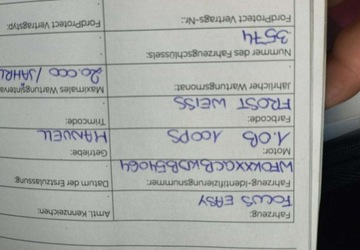 Fahrzeug: Amtl. Kennzeichen:
FOCUS EASY
Fahrzeug-Identifizierungsnummer: Datum der Erstzulassung:
Motor: Getriebe:
1.0B 100PS MANUELL
Farbcode: Trimcode:
FROST WEISS
Jährlicher Wartungsmonat: Maximales Wartungsinterva
20.000 /JAHRL
Nummer des Fahrzeugschlüssels:
3574
FordProtect Vertrags-Nr.: FordProtect Vertragstyp: